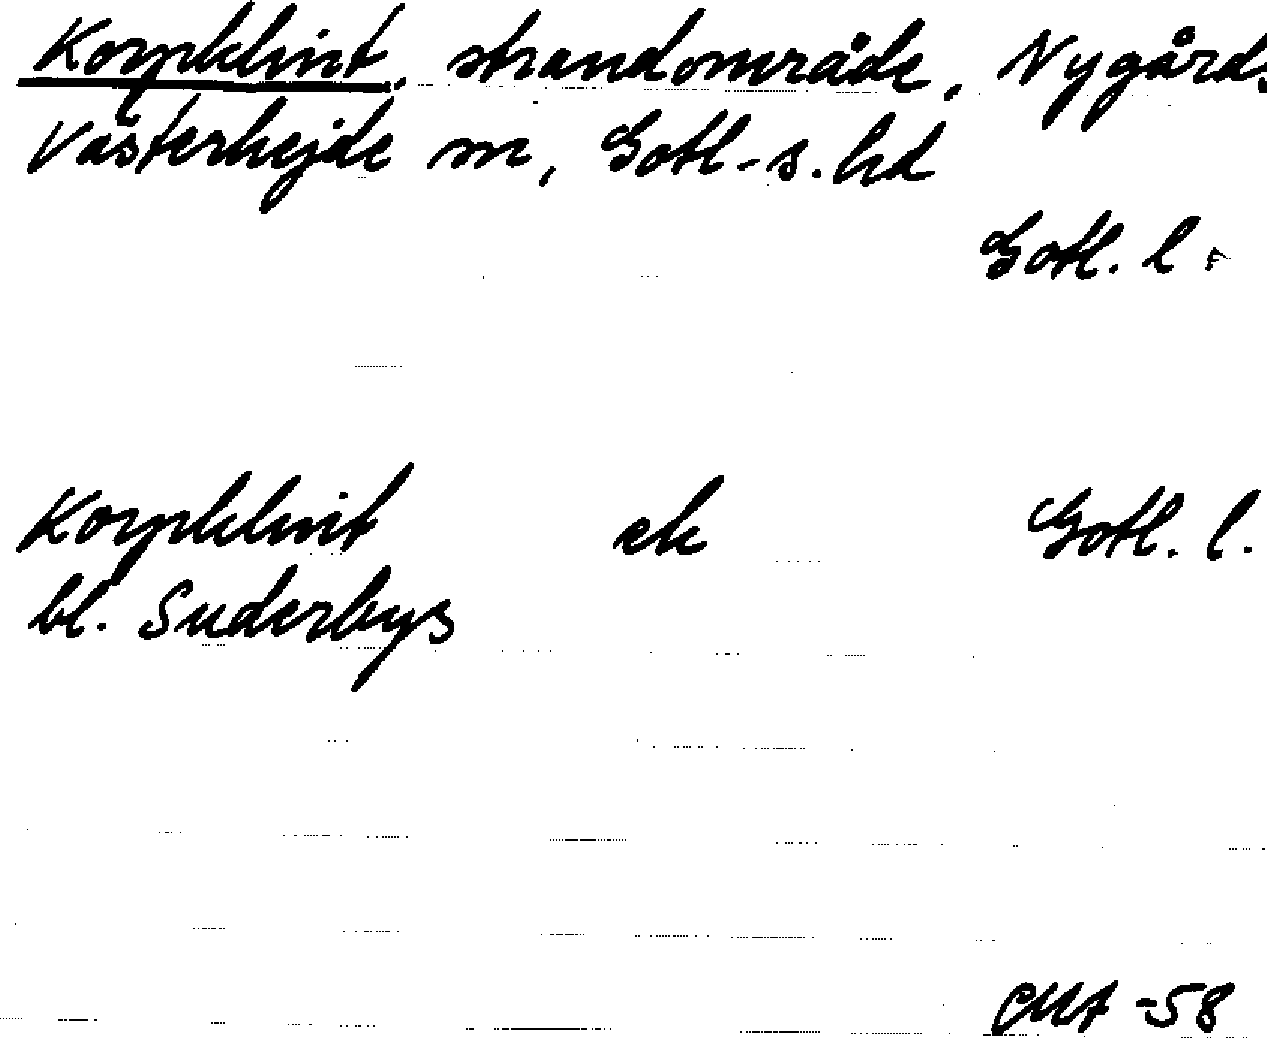 Korpklint, strandområde, Nygårds
Västerhejde sn, Gotl-s. hd
Gotl. l.
Korpklint ek Gotl. l.
bl. Suderbys
-58